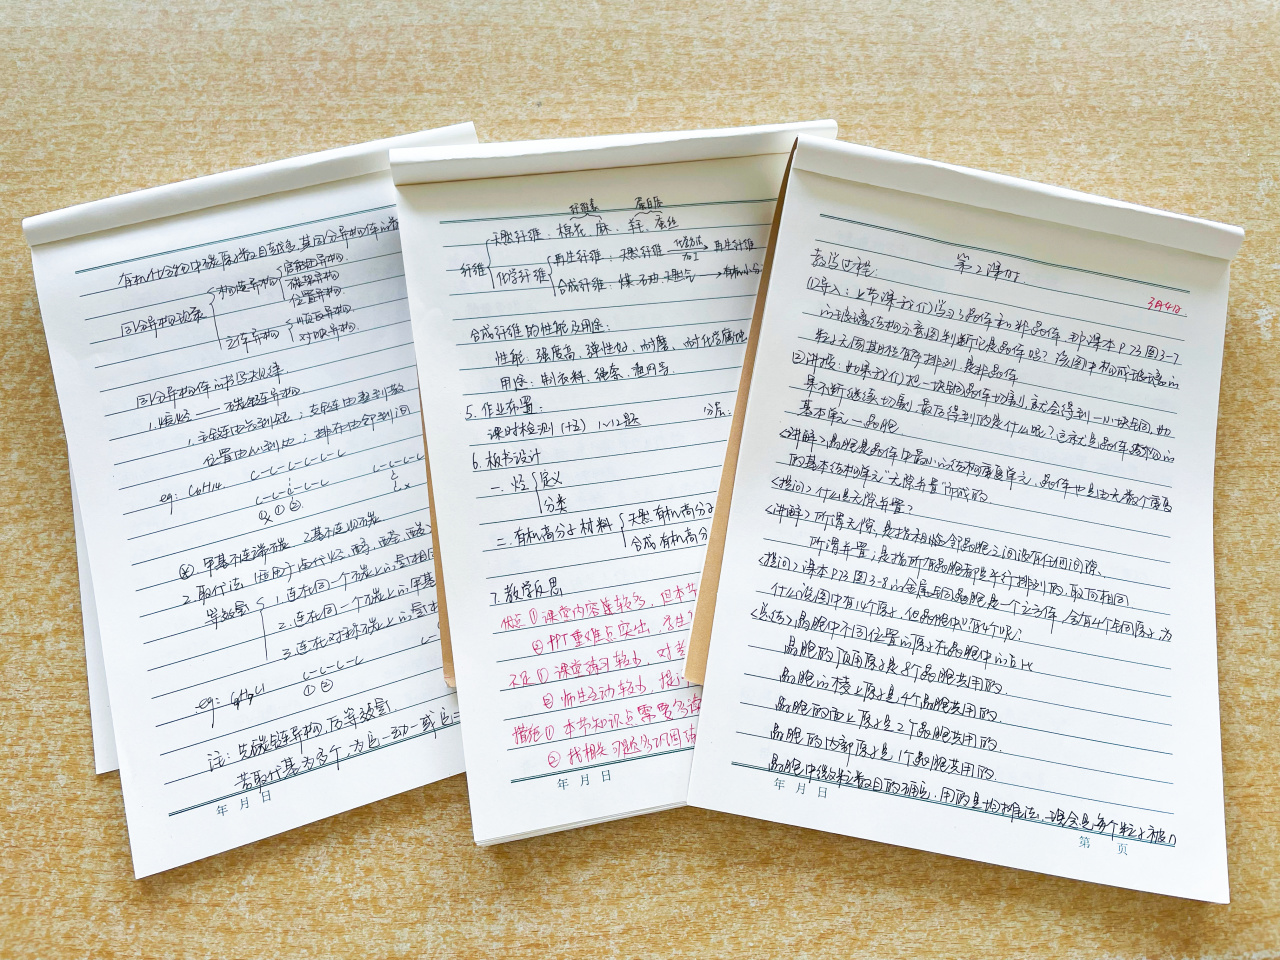 有机化合物中碳原子数目越多，其同分异构体
同分异构现象
构造异构
官能团异构
碳架异构
位置异构
立体异构
顺反异构
对映异构
同分异构体的书写规律
1.烷烃——碳链异构
1.主链由长到短；支链由整到散
位置由心到边；排布由邻到间
eg: C6H14 C-C-C-C-C-C
C-C-C-C-C
甲基不连端碳 乙基不连
2.取代法
等效氢
1.连在同一个碳上的氢相同
2.连在同一个碳上的甲基
3.连在对称碳上的氢
eg: C-C-C-C
① ②
注：先碳链异构，后等效氢
若取代基为多个，为
年 月 日
纤维素 蛋白质
纤维
天然纤维：棉花、麻、羊毛、蚕丝
化学纤维
再生纤维：天然纤维 再生纤维
合成纤维：煤 石油 天然气
合成纤维的性能及用途：
性能：强度高、弹性好、耐磨、耐化学腐蚀
用途：制衣料、绳索、渔网等
5.作业布置：
课时检测(十五) 1~12题 分层：
6.板书设计
一、烃
定义
分类
二、有机高分子材料
天然有机高分子
合成有机高分
7.教学反思
优点①课堂内容连较多，但本节
②PPT重难点突出，
不足①课堂练习较少，对
②师生互动较少，提
措施①本节知识点需要多读
②找相关习题多巩固
年 月 日
第2课时
教学过程：
3月4日
①导入：上节课我们学习了晶体和非晶体，那课本P73图3-7
的玻璃结构示意图判断它是晶体吗？该图中构成玻璃的
粒子无周期性有序排列，是非晶体
②讲授：如果我们把一块晶体切割，就会得到一小块晶体，如
果不断继续切割，最后得到的是什么呢？这就是晶体结构的
基本单元—晶胞
<讲解>晶胞是晶体中最小的结构重复单元，晶体也是由无数个晶胞
的基本结构单元“无隙并置”而成的
<提问>什么是无隙并置？
<讲解>所谓无隙，是指相邻晶胞之间没有任何间隙，
所谓并置，是指所有晶胞都是平行排列的，取向相同
<提问>课本P73图3-8的金属铜晶胞是一个立方体，含有4个铜原子，为
什么该图中有14个原子，但晶胞中只有4个呢？
<总结>晶胞中不同位置的原子在晶胞中的占比
晶胞的顶角原子是8个晶胞共用的，
晶胞的棱上原子是4个晶胞共用的，
晶胞的面上原子是2个晶胞共用的，
晶胞的内部原子是1个晶胞共用的
晶胞中微粒数目的确定，用的是均摊法，
年 月 日
第 页